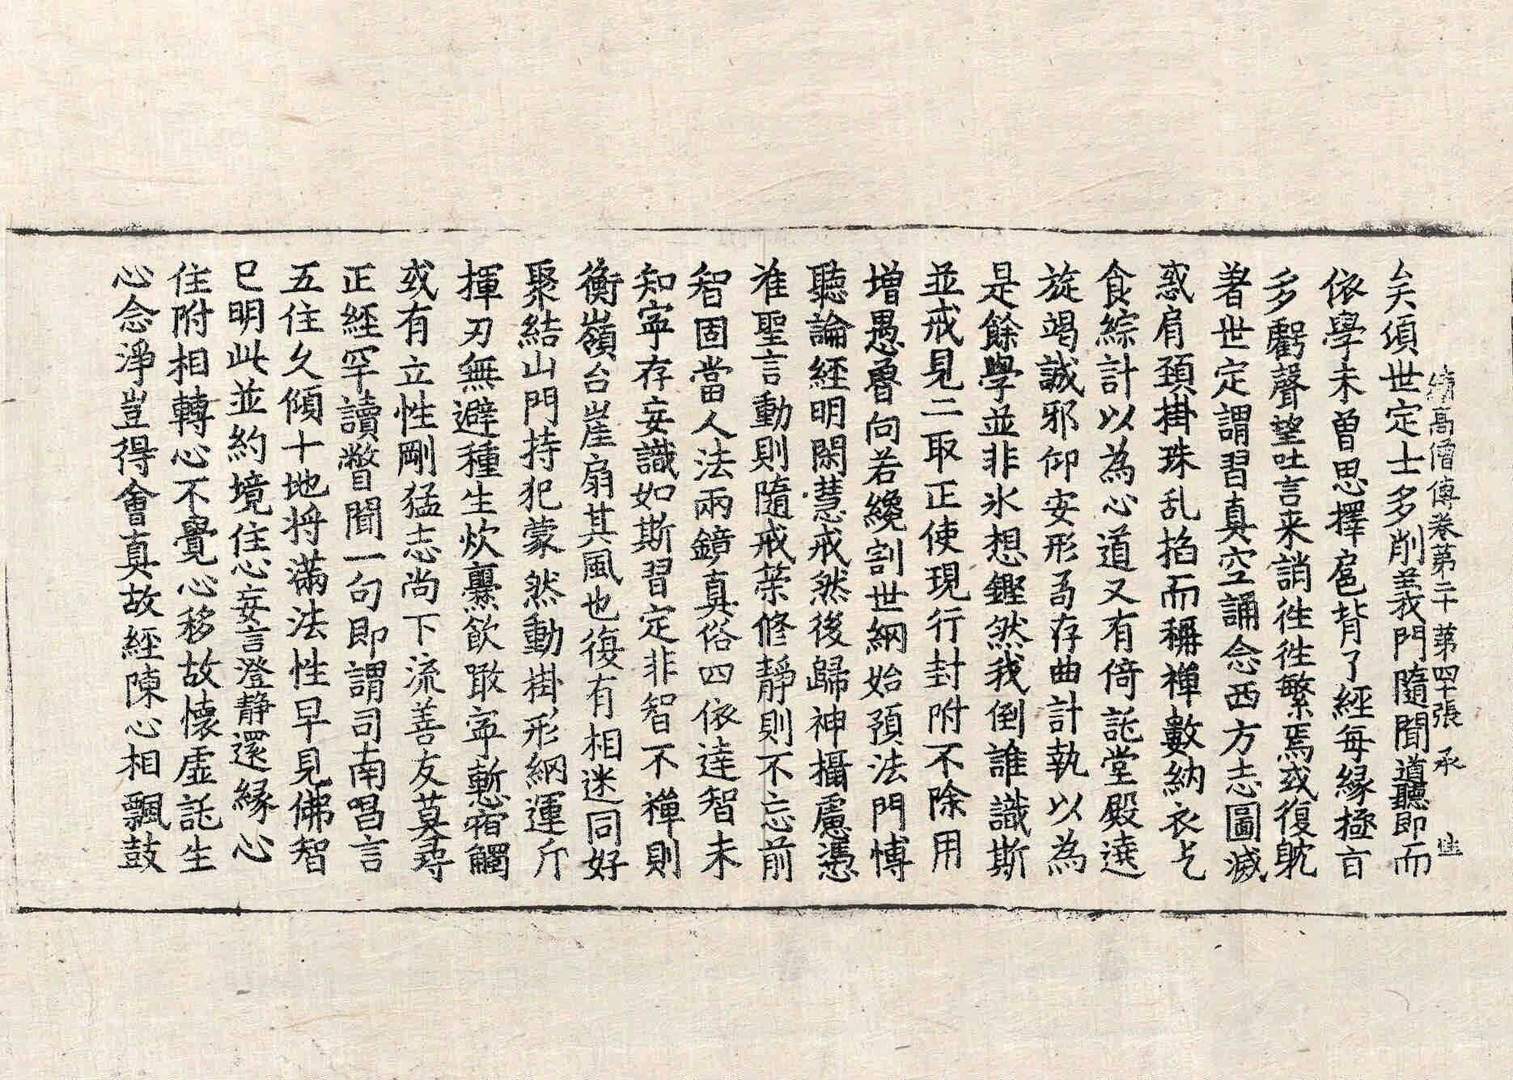 續高僧傳卷第二十 第四十張 承
矣頃世定士多削義門隨聞道聽即而
依學未曾思擇扈背了經每緣極旨
多虧聲望吐言来誚徃徃繁焉或復躭
著世定謂習真空誦念西方志圖滅
惑肩頚掛珠乱掐而稱禪數納衣乞
食綜計以為心道又有倚託堂殿遶
旋竭誠邪仰安形苟存曲計執以為
是餘學並非氷想鏗然我倒誰識斯
並戒見二取正使現行封附不除用
増愚魯向若纔割世網始預法門博
聽論經明閑慧戒然後歸神攝慮憑
准聖言動則隨戒策修靜則不忘前
智固當人法兩鏡真俗四依達智未
知寧存妄識如斯習定非智不禪則
衡嶺台崖扇其風也復有相迷同好
聚結山門持犯蒙然動掛形網運斤
揮刃無避種生炊爨飲噉寧慙宿觸
或有立性剛猛志尚下流善友莫尋
正經罕讀瞥聞一句即謂司南昌言
五住久傾十地将滿法性早見佛智
已明此並約境住心妄言澄靜還緣心
住附相轉心不覺心移故懷虛託生
心念淨豈得會真故經陳心相飄鼓